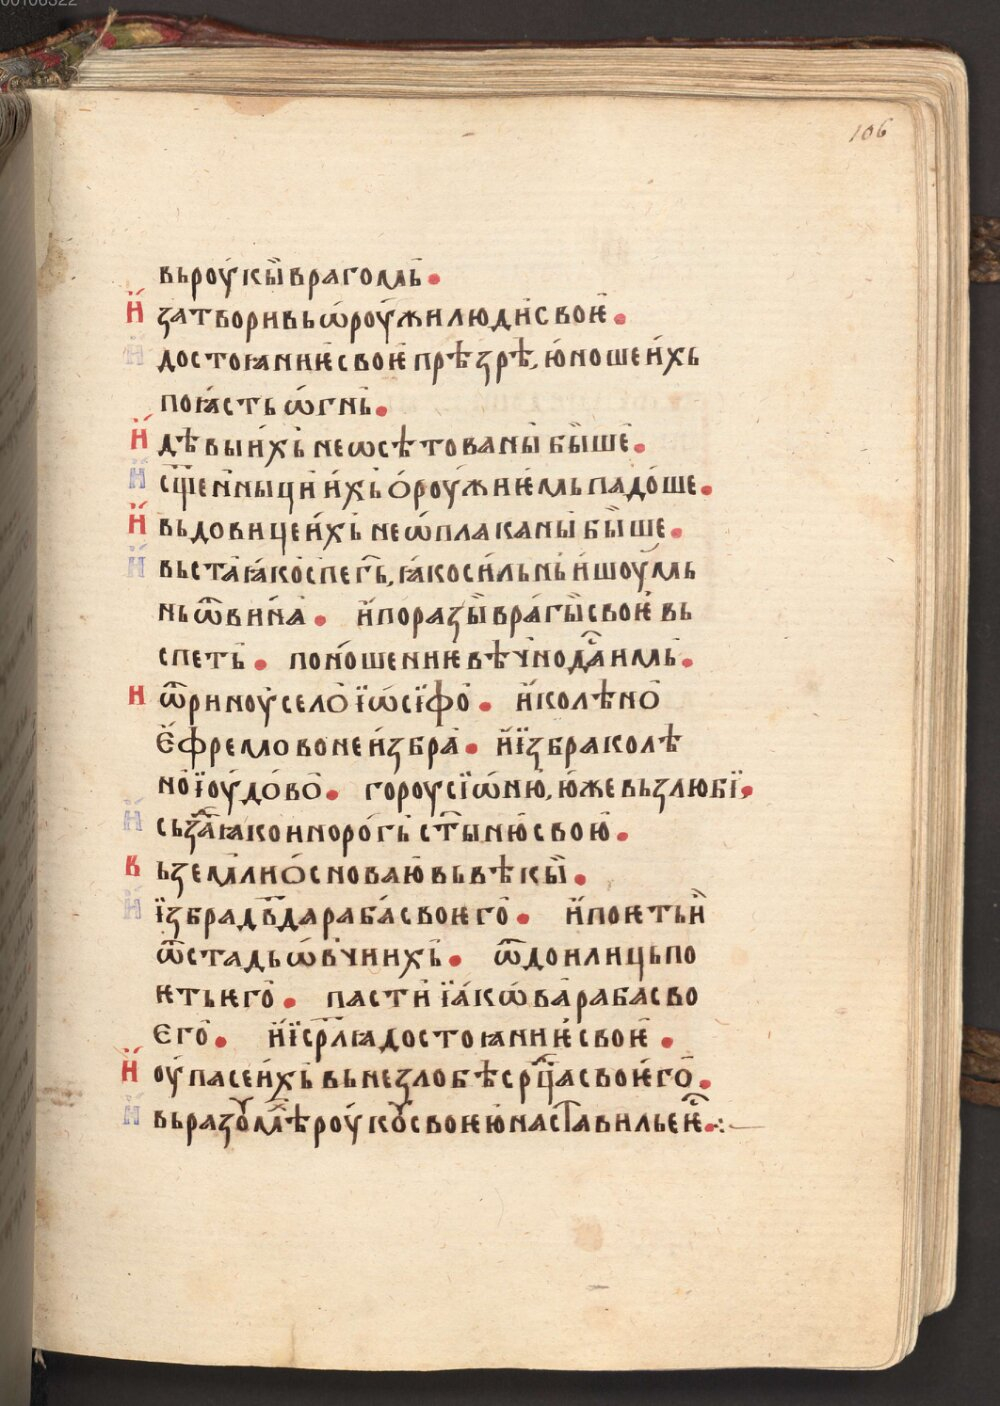 00106322
106
вь роу́кы̏ врагомь̏.
И҆ затвори вь ѡ҆роу́жи люди̏ своѥ̏.
И҆ достоꙗниѥ своѥ̏ прѣзрѣ, ю҆ноше и҆хь
поꙗ҆сть ѡ҆́гнь̏.
И҆ дѣвы и҆хь̏ не ѡсѣтованы̏ бы̏ше̏.
И҆ сщ҃ен҆ныци̏ и҆хь̏ ѻроу́жиѥ҆мь падо́ше.
И҆ вьдовице и҆хь̏ не ѡ҆плаканы̏ бы̏ше.
И҆ вьста̏ ꙗ҆ко спеⷢ҇ь, ꙗ҆ко си́льнь̏ и҆ шоу́мь
нь ѿ вина̏. и҆ порази̏ враѓы̏ своѥ̏ вь
спеть̏. поно́шениѥ вѣч́но даⷭ҇ имь̏.
И ѿриноу̏ село̏ їѡ҆сїфо̏. и҆ колѣно̏
Є҆фремово не и҆збра̏. и҆ їзбра колѣ
но̏ їоу́до́во̏. гороу сїѡ҆ню̏, ю҆же вьзлюбї̏.
И҆ сьз̾даⷭ҇ ꙗко инороѓь ст҃ыню̏ свою̏.
В ьземлы̏ ѻснова ю҆ вь вѣкы̏.
И҆ їзбра дв҃да раба́ своѥго̏. и҆ поѥть и̏
ѿ стадь ѡ҆вч́иихь̏. ѿ доилиць по
ѥть ѥго̏. пасти̏ їа҆кѡ́ва̏ раба сво
єго̏. и҆ їс҃рлꙗ достоꙗниѥ̏ своѥ̏.
И҆ оу҆пасе и҆хь̏ вь незлобѣ ср҃ца своѥ҆го̏.
И҆ вь разоумѣ роу́коу своѥю наставиль еѥⷭ҇.